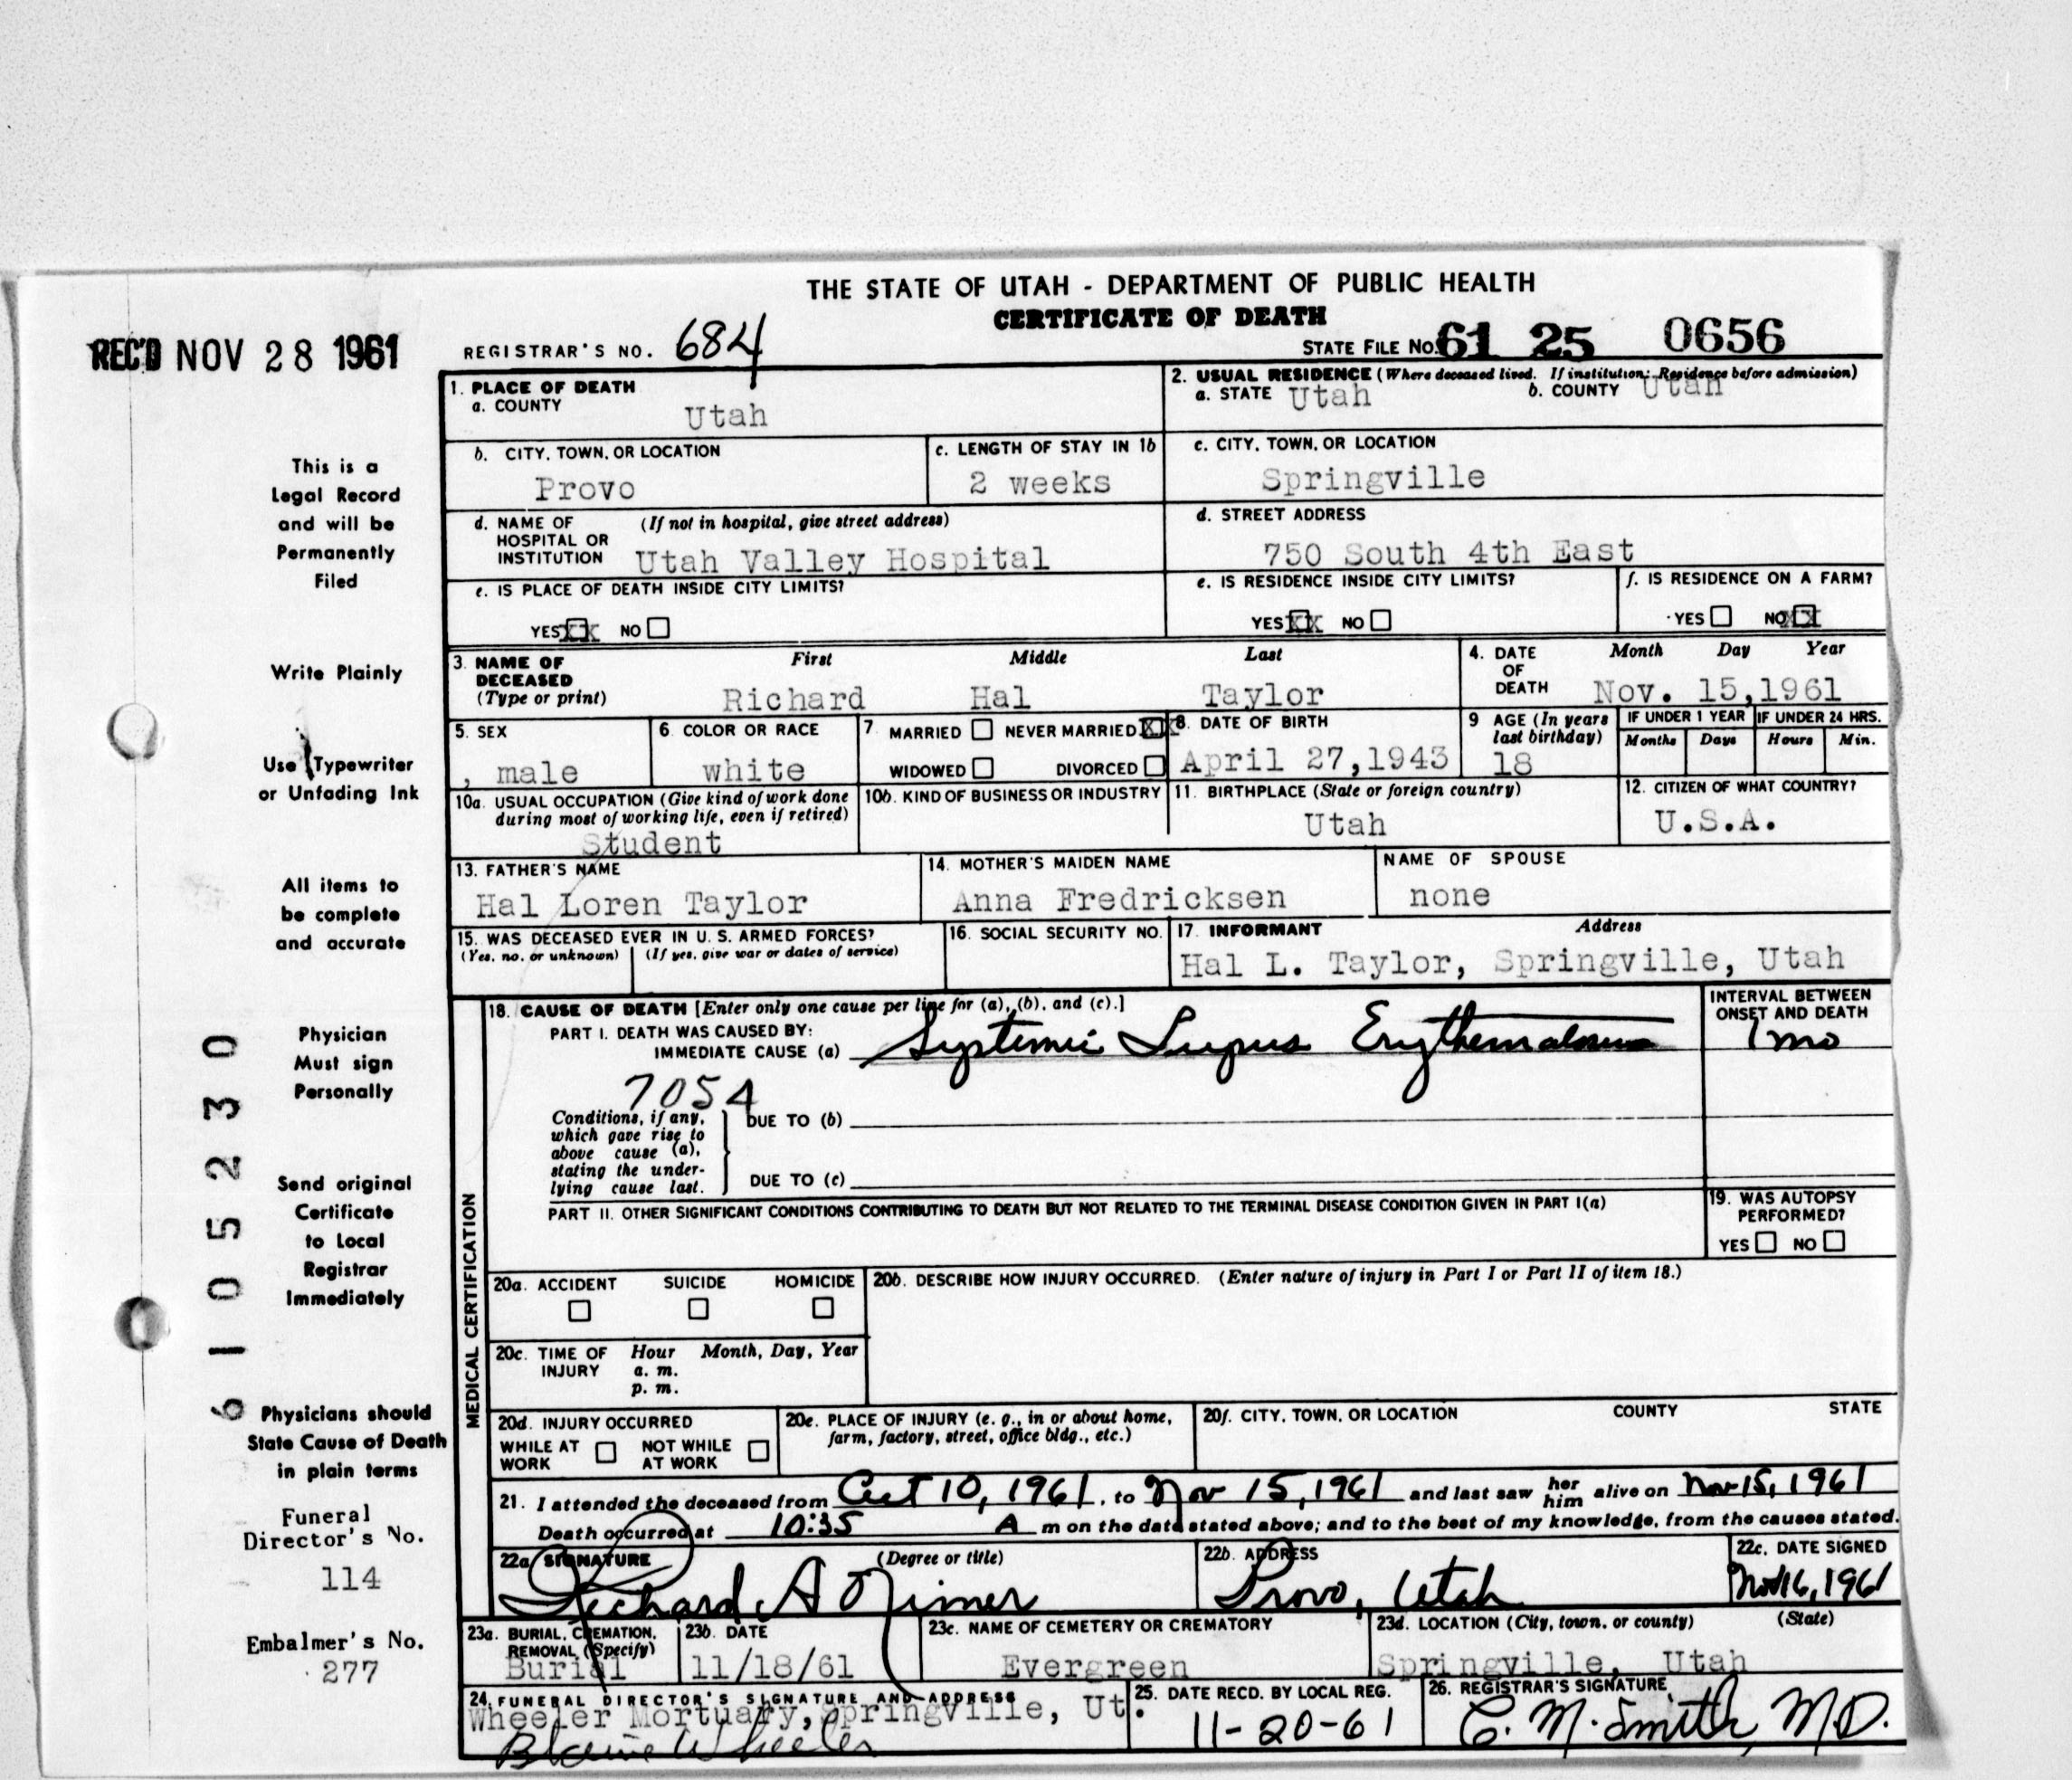 THE STATE OF UTAH - DEPARTMENT OF PUBLIC HEALTH
CERTIFICATE OF DEATH
REC'D NOV 28 1961
REGISTRAR'S NO. 684
STATE FILE NO. 61 25 0656
1. PLACE OF DEATH
a. COUNTY
Utah
2. USUAL RESIDENCE (Where deceased lived. If institution: Residence before admission)
a. STATE Utah b. COUNTY Utah
b. CITY, TOWN, OR LOCATION
Provo
c. LENGTH OF STAY IN 1b
2 weeks
c. CITY, TOWN, OR LOCATION
Springville
d. NAME OF (If not in hospital, give street address)
HOSPITAL OR
INSTITUTION Utah Valley Hospital
d. STREET ADDRESS
750 South 4th East
e. IS PLACE OF DEATH INSIDE CITY LIMITS?
YES XX NO
e. IS RESIDENCE INSIDE CITY LIMITS?
YES XX NO
f. IS RESIDENCE ON A FARM?
YES NO XX
3. NAME OF
DECEASED
(Type or print)
First Middle Last
Richard Hal Taylor
4. DATE
OF
DEATH
Month Day Year
Nov. 15,1961
5. SEX
male
6. COLOR OR RACE
white
7. MARRIED NEVER MARRIED XX
WIDOWED DIVORCED
8. DATE OF BIRTH
April 27,1943
9 AGE (In years
last birthday)
18
IF UNDER 1 YEAR
Months Days
IF UNDER 24 HRS.
Hours Min.
10a. USUAL OCCUPATION (Give kind of work done
during most of working life, even if retired)
Student
10b. KIND OF BUSINESS OR INDUSTRY
11. BIRTHPLACE (State or foreign country)
Utah
12. CITIZEN OF WHAT COUNTRY?
U.S.A.
13. FATHER'S NAME
Hal Loren Taylor
14. MOTHER'S MAIDEN NAME
Anna Fredricksen
NAME OF SPOUSE
none
15. WAS DECEASED EVER IN U. S. ARMED FORCES?
(Yes, no, or unknown) (If yes, give war or dates of service)
16. SOCIAL SECURITY NO.
17. INFORMANT Address
Hal L. Taylor, Springville, Utah
MEDICAL CERTIFICATION
18. CAUSE OF DEATH [Enter only one cause per line for (a), (b), and (c).]
PART I. DEATH WAS CAUSED BY:
IMMEDIATE CAUSE (a) Systemic Lupus Erythematosus
INTERVAL BETWEEN
ONSET AND DEATH
1 mo
7054
Conditions, if any,
which gave rise to
above cause (a),
stating the under-
lying cause last.
DUE TO (b)
DUE TO (c)
PART II. OTHER SIGNIFICANT CONDITIONS CONTRIBUTING TO DEATH BUT NOT RELATED TO THE TERMINAL DISEASE CONDITION GIVEN IN PART I(a)
19. WAS AUTOPSY
PERFORMED?
YES NO
20a. ACCIDENT SUICIDE HOMICIDE
20b. DESCRIBE HOW INJURY OCCURRED. (Enter nature of injury in Part I or Part II of item 18.)
20c. TIME OF
INJURY
Hour Month, Day, Year
a. m.
p. m.
20d. INJURY OCCURRED
WHILE AT
WORK
NOT WHILE
AT WORK
20e. PLACE OF INJURY (e. g., in or about home,
farm, factory, street, office bldg., etc.)
20f. CITY, TOWN, OR LOCATION COUNTY STATE
21. I attended the deceased from Oct 10, 1961, to Nov 15, 1961 and last saw her him alive on Nov 15, 1961
Death occurred at 10:35 A m on the date stated above; and to the best of my knowledge, from the causes stated.
22a. SIGNATURE (Degree or title)
Richard A Nimer
22b. ADDRESS
Provo, Utah
22c. DATE SIGNED
Nov 16, 1961
23a. BURIAL, CREMATION,
REMOVAL (Specify)
Burial
23b. DATE
11/18/61
23c. NAME OF CEMETERY OR CREMATORY
Evergreen
23d. LOCATION (City, town, or county) (State)
Springville, Utah
24. FUNERAL DIRECTOR'S SIGNATURE AND ADDRESS
Wheeler Mortuary, Springville, Ut.
Blaine Wheeler
25. DATE RECD. BY LOCAL REG.
11-20-61
26. REGISTRAR'S SIGNATURE
C. M. Smith, M.D.
This is a
Legal Record
and will be
Permanently
Filed
Write Plainly
Use Typewriter
or Unfading Ink
All items to
be complete
and accurate
Physician
Must sign
Personally
Send original
Certificate
to Local
Registrar
Immediately
Physicians should
State Cause of Death
in plain terms
Funeral
Director's No.
114
Embalmer's No.
277
6105230